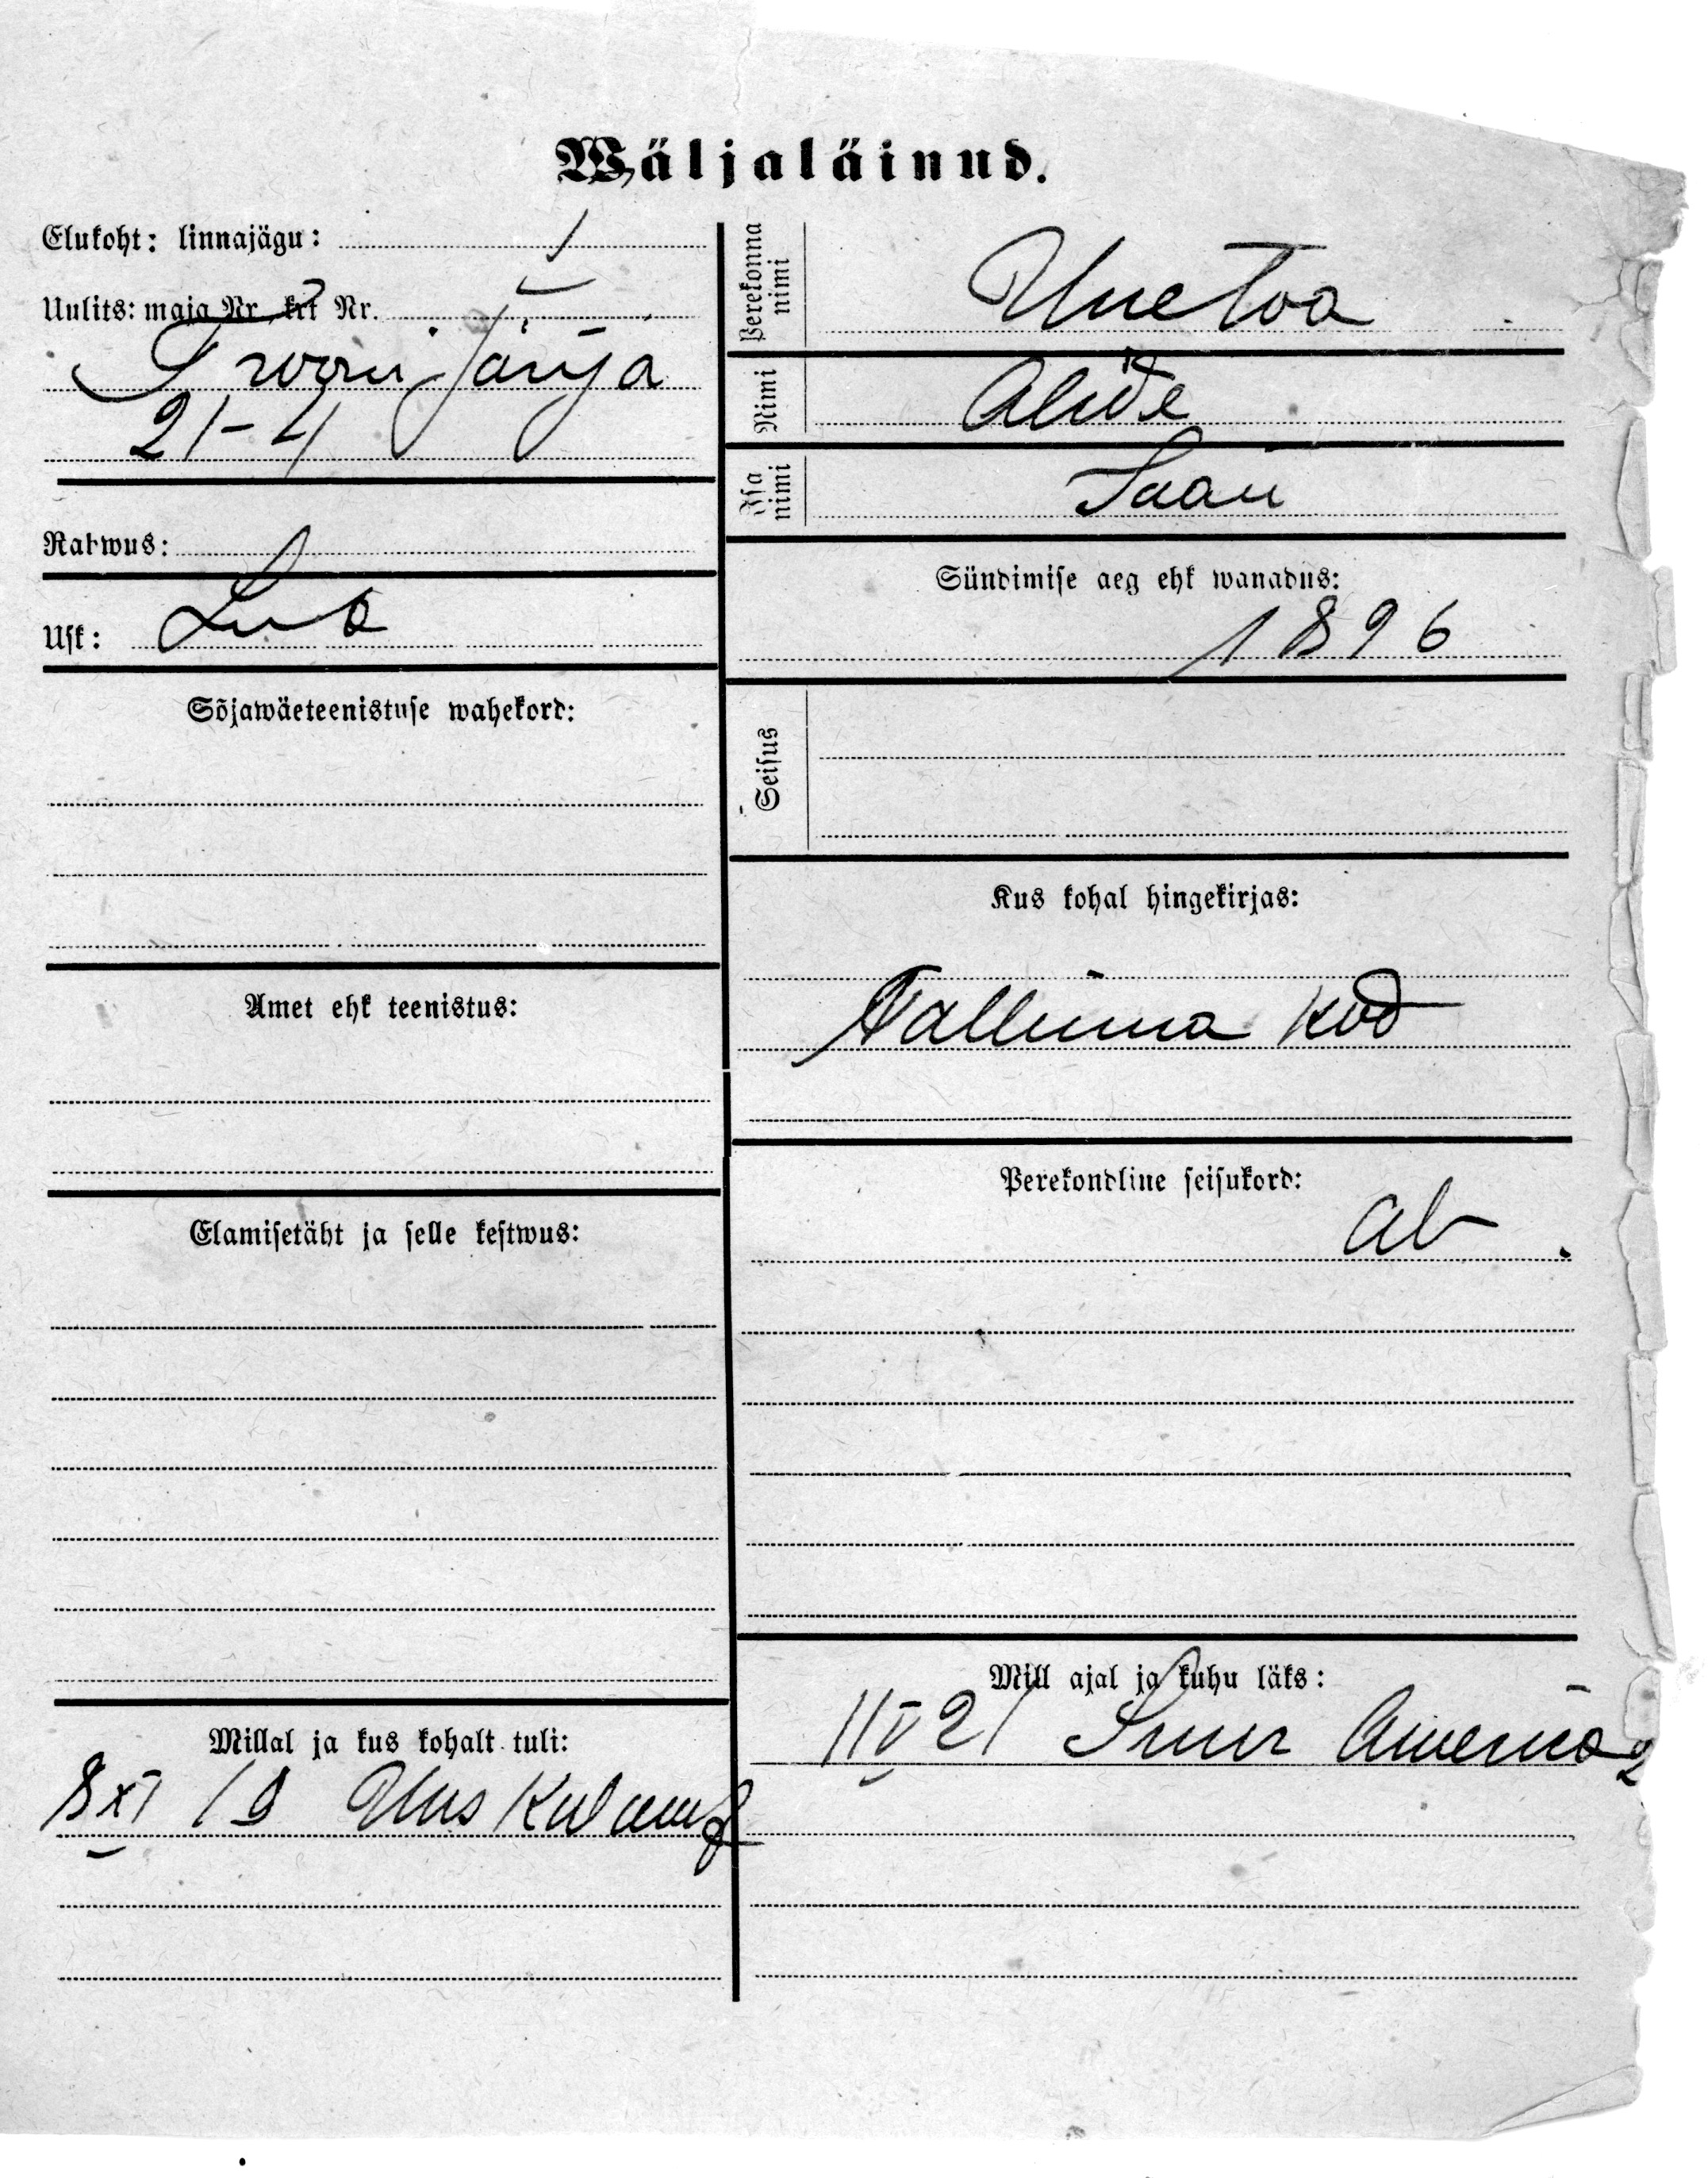 Wäljaläinud.
Elukoht: linnajägu: 1
Uulits: maja Nr., krt Nr.
Trooni Järja
21-4
Rahwus:
Usk: Lut
Sõjawäeteenistuse wahekord:
Amet ehk teenistus:
Elamisetäht ja selle kestwus:
Millal ja kus kohalt tuli:
8 XI 19 Uus
Perekonna
nimi
Uuetoa
Nimi
Alide
Isa
nimi
Jaan
Sündimise aeg ehk wanadus:
1896
Seisus
Kus kohal hingekirjas:
Tallinna kod
Perekondline seisukord:
ab.
Mill ajal ja kuhu läks:
11 V 21 Suur America 2